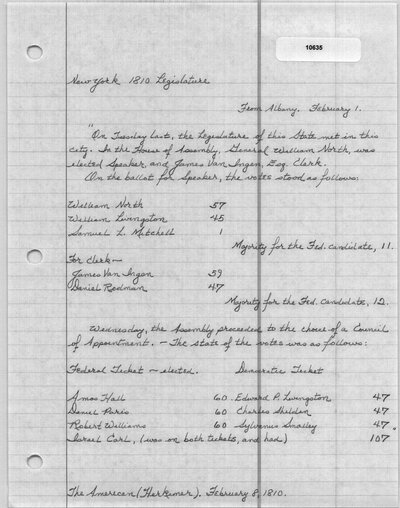 10635
New York 1810 Legislature
From Albany. February 1.
"On Tuesday last, the Legislature of this State met in this
city. In the House of Assembly, General William North, was
elected Speaker, and James Van Ingen, Esq. Clerk.
On the ballot for Speaker, the votes stood as follows:
William North 57
William Livingston 45
Samuel L. Mitchell 1
Majority for the Fed. candidate, 11.
For Clerk—
James Van Ingen 59
Daniel Rodman 47
Majority for the Fed. candidate, 12.
Wednesday, the Assembly proceeded to the choice of a Council
of Appointment. — The state of the votes was as follows:
Federal Ticket — elected. Democratic Ticket
Amos Hall 60 Edward P. Livingston 47
Daniel Paris 60 Charles Shelden 47
Robert Williams 60 Sylvanus Smalley 47
Israel Carl, (was on both tickets, and had) 107"
The American (Herkimer). February 8, 1810.